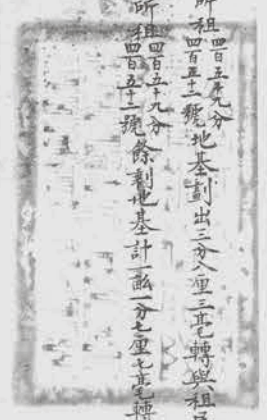 所租四百五十九分
四百五十一號地基劃出三分八厘三毫轉與租
所租四百五十九分
四百五十二號餘剩地基計一畝一分七厘七毫轉